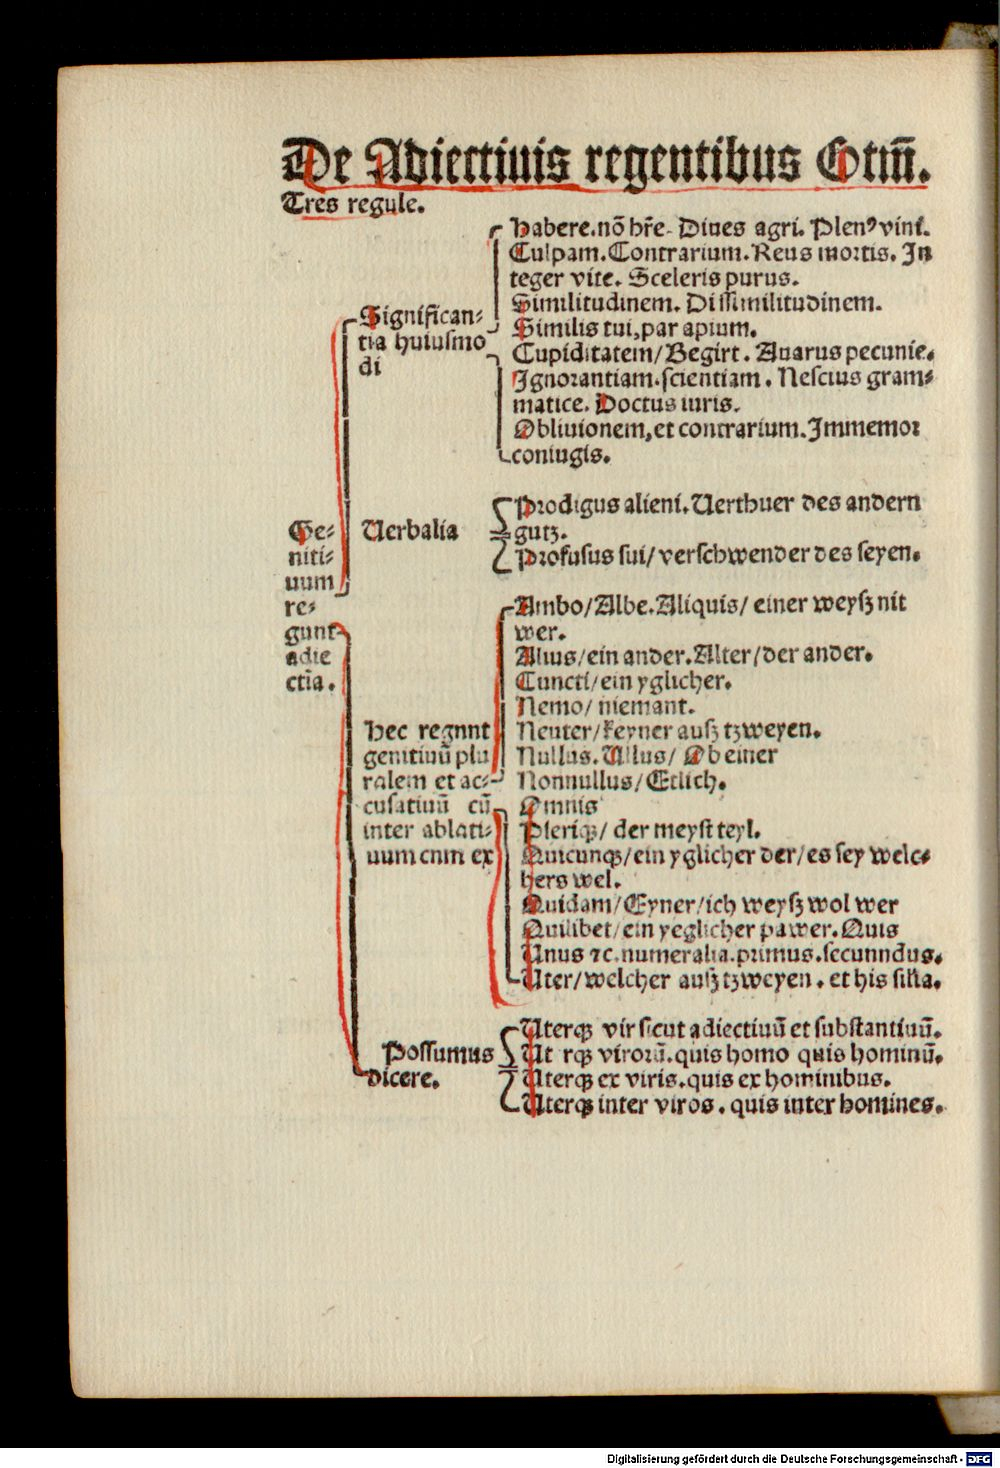 De Adiectiuis regentibus Gtm̄.
Tres regule.
Ge-
niti-
uum
re-
gunt
adie
ctīa.
Significan-
tia huiusmo
di
Habere. nō hr̄e. Diues agri. Plenꝰ vini.
Culpam. Contrarium. Reus mortis. In
teger vite. Sceleris purus.
Similitudinem. Dissimilitudinem.
Similis tui, par apium.
Cupiditatem/ Begirt. Auarus pecunie.
Ignorantiam. scientiam. Nescius gram-
matice. Doctus iuris.
Obliuionem, et contrarium. Immemor
coniugis.
Uerbalia
Prodigus alieni. Uerthuer des andern
gutz.
Profusus sui/ verschwender des seyen.
Hec regunt
genitiuū plu
ralem et ac-
cusatiuū cū
inter ablati-
uum cum ex
Ambo/ Albe. Aliquis/ einer weysz nit
wer.
Alius/ ein ander. Alter/ der ander.
Cuncti/ ein yglicher.
Nemo/ niemant.
Neuter/ keyner ausz tzweyen.
Nullus. Ullus/ Ob einer
Nonnullus/ Etlich.
Omnis
Pleriqꝫ/ der meyst teyl.
Quicunqꝫ/ ein yglicher der/ es sey welc-
hers wel.
Quidam/ Eyner/ ich weysz wol wer
Quilibet/ ein yeglicher pawer. Quis
Unus ⁊c. numeralia. primus. secunndus.
Uter/ welcher ausz tzweyen. et his sil̄ia.
Possumus
dicere.
Uterqꝫ vir sicut adiectiuū et substantiuū.
Ut rqꝫ virorū. quis homo quis hominū.
Uterqꝫ ex viris. quis ex hominibus.
Uterqꝫ inter viros. quis inter homines.
Digitalisierung gefördert durch die Deutsche Forschungsgemeinschaft - DFG